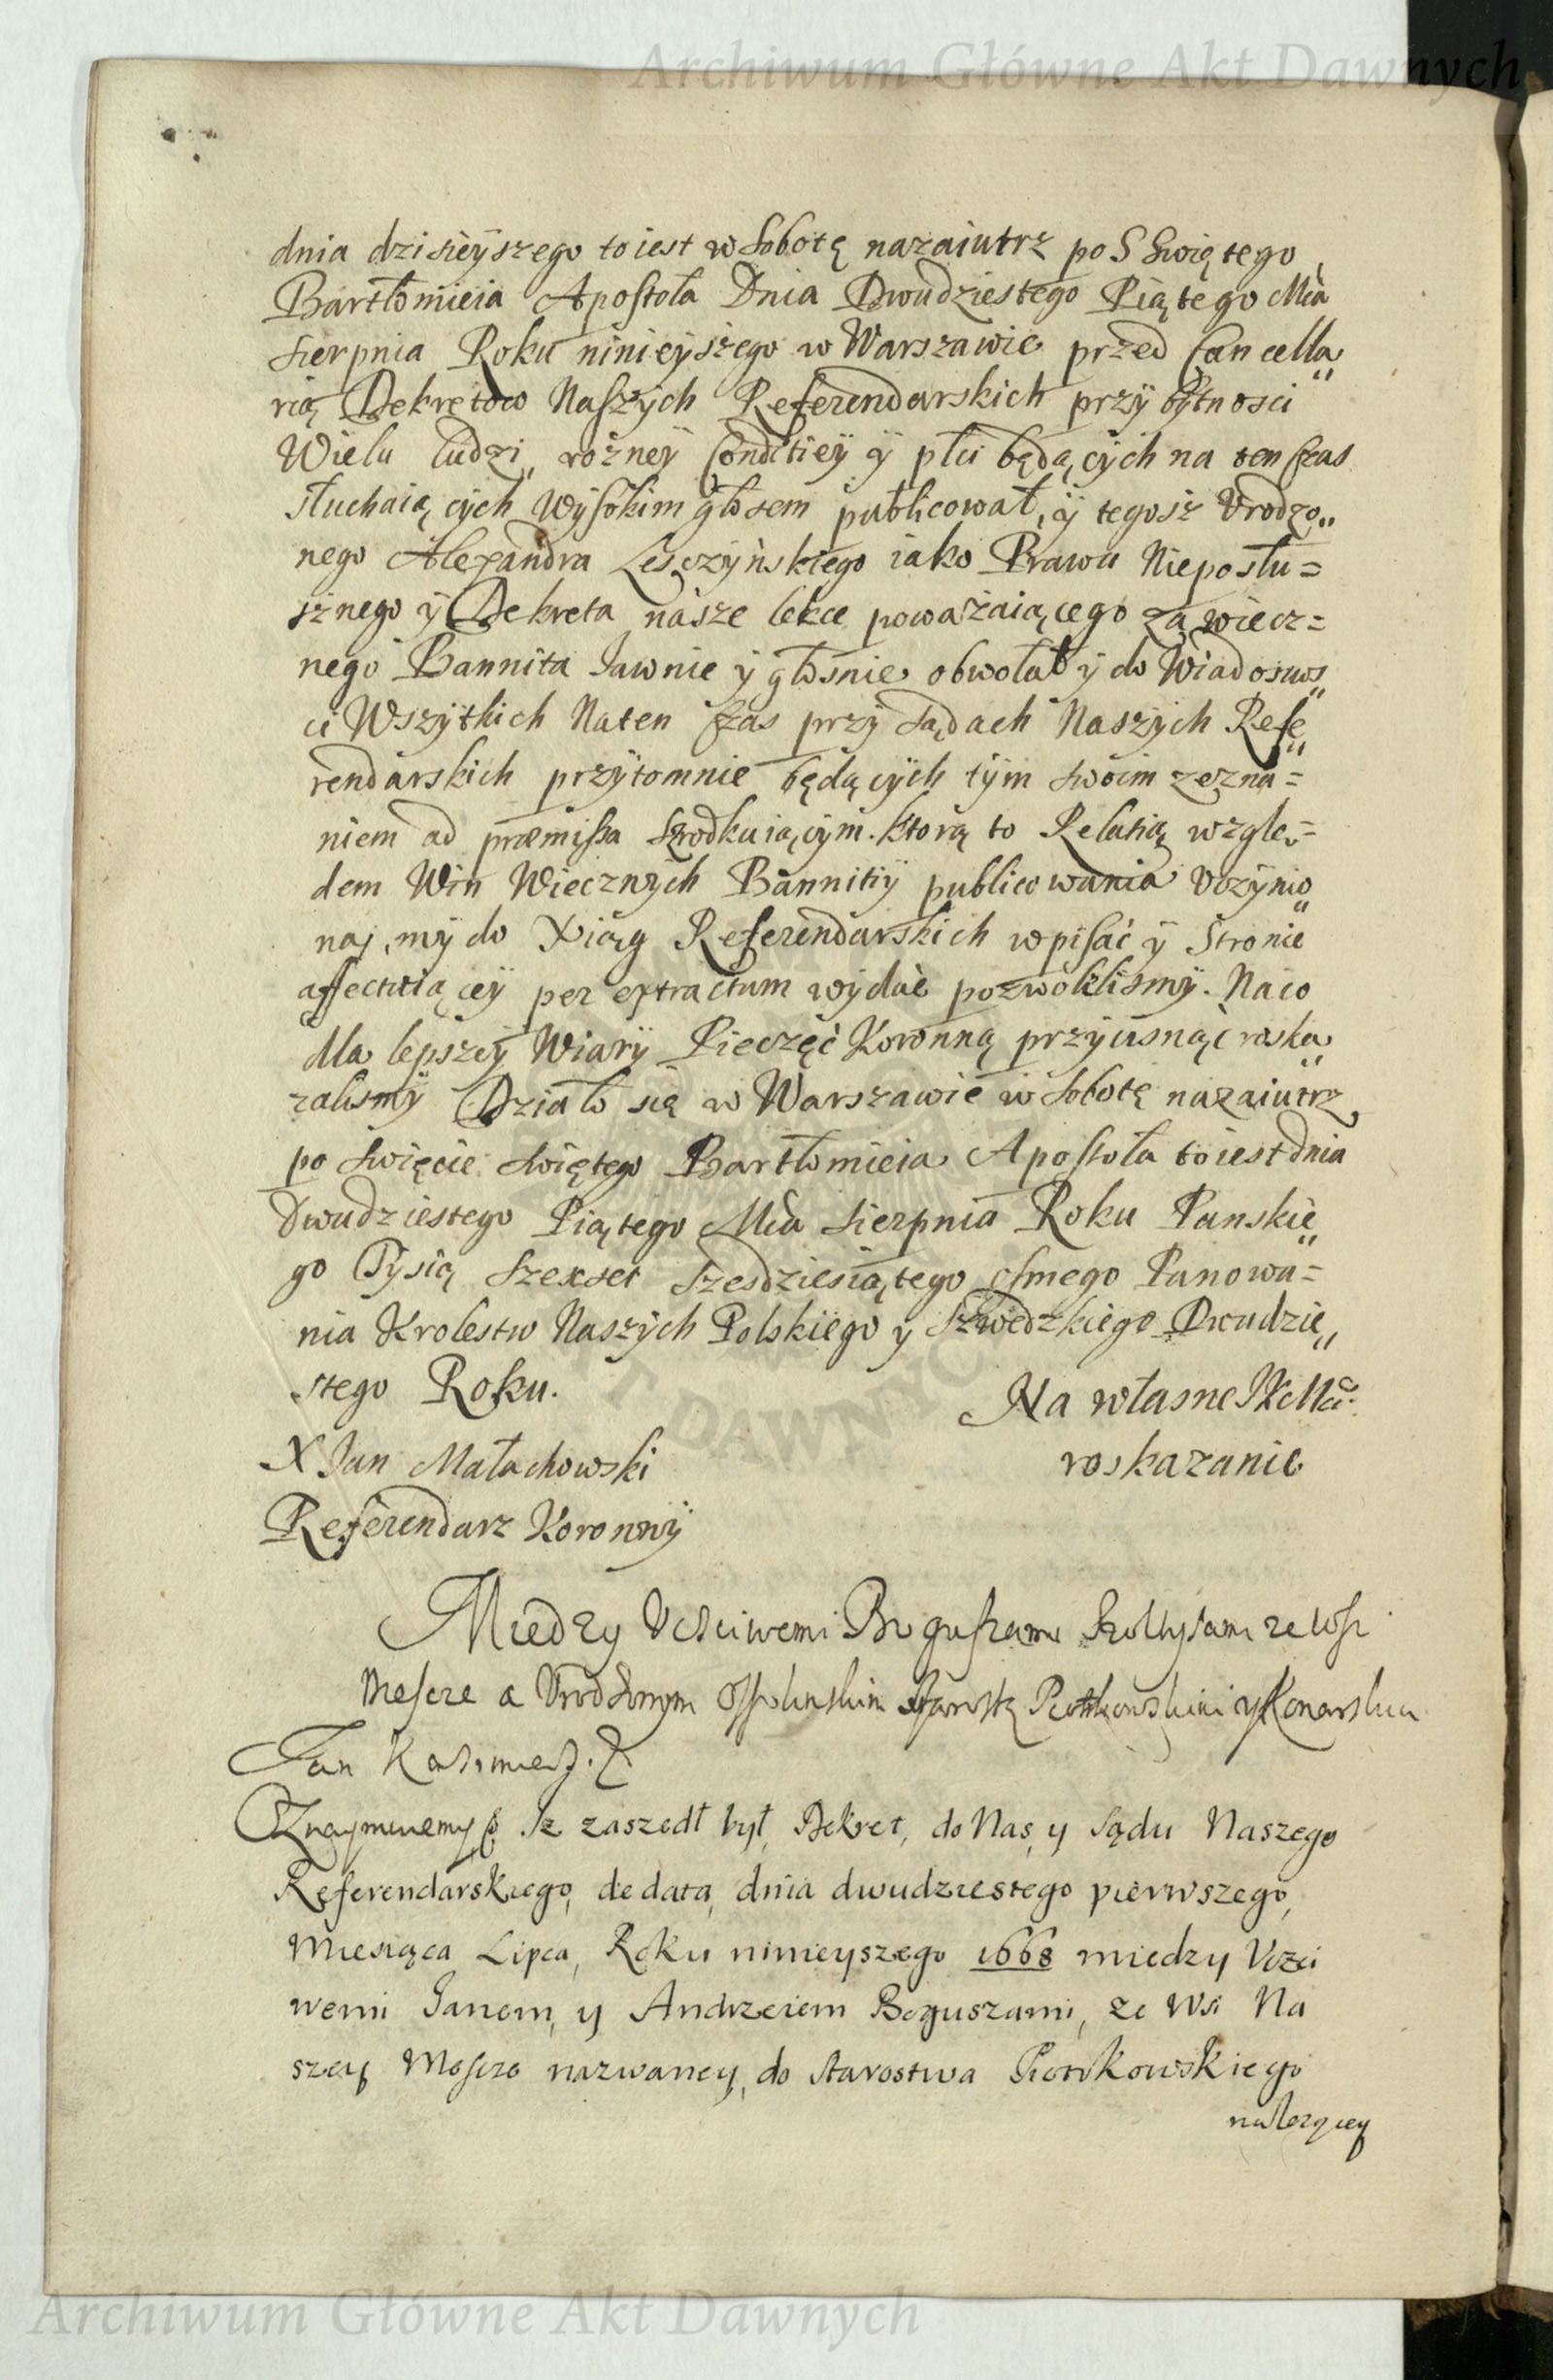 Archiwum Główne Akt Dawnych
dnia dzisieÿszego to iest w Sobotę nazaiutrz po S Swiętego
Bartłomieia Apostoła Dnia Dwudziestego Piątego Mca
Sierpnia Roku ninieÿszego w Warszawie przed Cancella„
rią Dekretow Naszÿch Referendarskich przÿ bÿtnosci
Wielu ludzi, rożneÿ Conditieÿ ÿ płci będącÿch na ten czas
słuchaiącÿch Wÿsokim głosem publicował, ÿ tegosz Vrodzo„
nego Alexandra Lesczÿńskiego iako Prawu Nieposłu=
sznego ÿ Dekreta nasze lekce poważaiącego za wiecz=
nego Bannita Jawnie ÿ głosnie obwołał ÿ do Wiadomos„
ci Wszÿtkich Naten czas przÿ Sądach Naszÿch Refe„
rendarskich przÿtomnie będącÿch tÿm swoim zezna=
niem ad præmissa Srodkuiącÿm. ktorą to Relatią wzglę=
dem Win Wiecznÿch Bannitiÿ publicowania Vczÿnio„
ną, mÿ do Xiąg Referendarskich wpisać ÿ Stronie
affectuiąceÿ per extractum wÿdać pozwolilismÿ. Na co
dla lepszeÿ Wiarÿ Pieczęć Koronną przÿcisnąć roska„
zalismÿ Działo się w Warszawie w Sobotę nazaiutrz
po Swięcie Swiętego Bartłomieia Apostoła to iest dnia
Dwudziestego Piątego Mca Sierpnia Roku Panskie„
go Tysią Szexset Szesdziesiątego osmego Panowa=
nia Krolestw Naszÿch Polskiego y Szwedzkiego Dwudzie„
stego Roku.
Na własne JKMci
roskazanie
X Jan Małachowski
Referendarz Koronnÿ
Miedzy Vcsciwemi Boguszami Szołtysami ze Wsi
Mescze a Vrodzonym Ossolinskim Starostą Piotrkowskim y
Jan Kazimierz.
Znaymuiemy Iz zaszedł był, Dekret, do Nas, y Sądu Naszego
Referendarskiego, de data, dnia dwudziestego pierwszego,
Miesiąca Lipca, Roku ninieyszego 1668 miedzy Vczci
wemi Janem, y Andrzeiem Boguszami, ze Wsi Na
szey Mescze nazwaney, do Starostwa Piotrkowskiego
nalezącey
Archiwum Główne Akt Dawnych